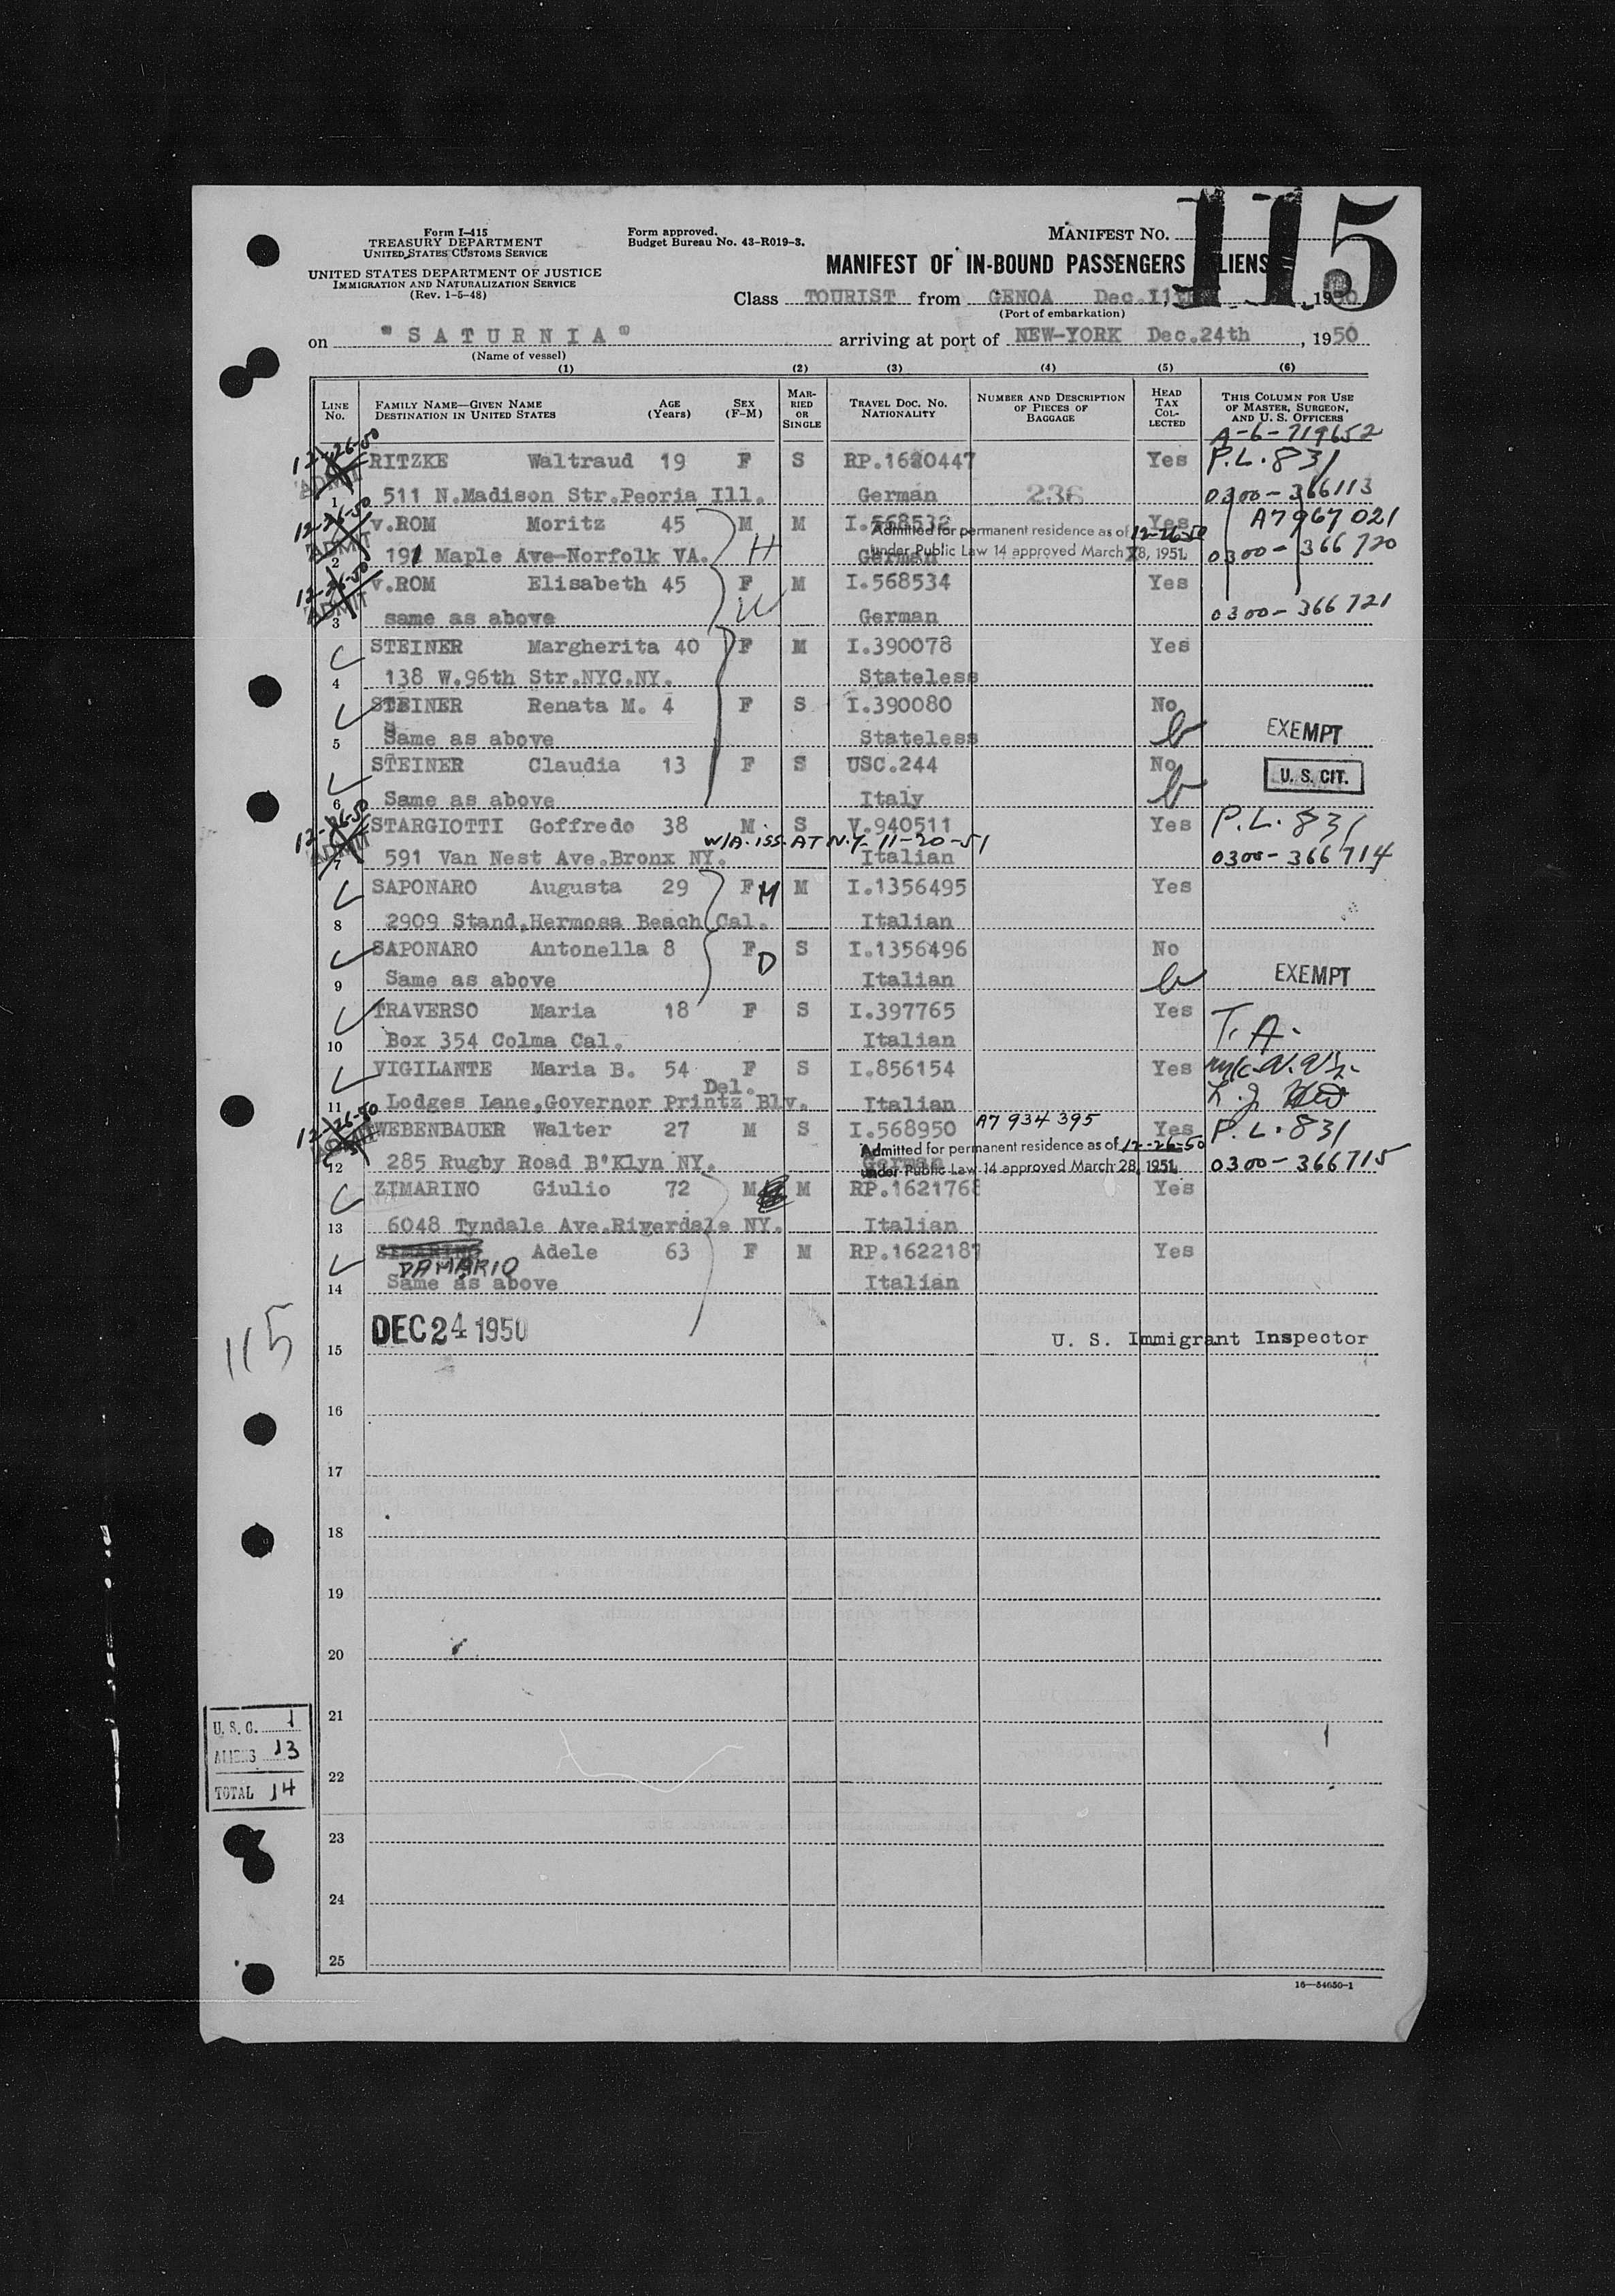 Form I-415
TREASURY DEPARTMENT
UNITED STATES CUSTOMS SERVICE
UNITED STATES DEPARTMENT OF JUSTICE
IMMIGRATION AND NATURALIZATION SERVICE
(Rev. 1-5-48)
Form approved.
Budget Bureau No. 43-R019-3.
MANIFEST NO. 115
MANIFEST OF IN-BOUND PASSENGERS LIENS
Class TOURIST from GENOA Dec.11th, 1950
(Port of embarkation)
on "SATURNIA" arriving at port of NEW-YORK Dec.24th, 1950
(Name of vessel)
(1) (2) (3) (4) (5) (6)
LINE No. FAMILY NAME—GIVEN NAME DESTINATION IN UNITED STATES AGE (Years) SEX (F-M) MARRIED OR SINGLE TRAVEL DOC. NO. NATIONALITY NUMBER AND DESCRIPTION OF PIECES OF BAGGAGE HEAD TAX COLLECTED THIS COLUMN FOR USE OF MASTER, SURGEON, AND U. S. OFFICERS
A-6-719652
12-26-50 ADMIT RITZKE Waltraud 19 F S RP.1620447 Yes P.L. 831
1 511 N.Madison Str.Peoria Ill. German 236 0300-366113
12-26-50 ADMIT v.ROM Moritz 45 M M I.568532 Yes A7967021
Admitted for permanent residence as of 12-26-50
under Public Law 14 approved March 28, 1951.
2 191 Maple Ave-Norfolk VA. H German 0300-366720
12-26-50 ADMIT v.ROM Elisabeth 45 F M I.568534 Yes
3 same as above W German 0300-366721
STEINER Margherita 40 F M I.390078 Yes
4 138 W.96th Str.NYC.NY. Stateless
STEINER Renata M. 4 F S I.390080 No
5 Same as above Stateless EXEMPT
STEINER Claudia 13 F S USC.244 No
6 Same as above Italy U. S. CIT.
12-26-50 ADMIT STARGIOTTI Goffredo 38 M S V.940511 Yes P.L. 831
W/A. iss. AT N.Y. 11-20-51
7 591 Van Nest Ave.Bronx NY. Italian 0300-366714
SAPONARO Augusta 29 F M M I.1356495 Yes
8 2909 Stand,Hermosa Beach Cal. Italian
SAPONARO Antonella 8 F D S I.1356496 No
9 Same as above Italian EXEMPT
TRAVERSO Maria 18 F S I.397765 Yes T. A.
10 Box 354 Colma Cal. Italian
VIGILANTE Maria B. 54 F S I.856154 Yes
Del.
11 Lodges Lane,Governor Printz Blv. Italian
12-26-50 ADMIT WEBENBAUER Walter 27 M S I.568950 A7 934 395 Yes P.L. 831
Admitted for permanent residence as of 12-26-50
under Public Law 14 approved March 28, 1951.
12 285 Rugby Road B'Klyn NY. German 0300-366715
ZIMARINO Giulio 72 M M RP.1621768 Yes
13 6048 Tyndale Ave.Riverdale NY. Italian
ZIMARINO Adele 63 F M RP.1622187 Yes
DAMARIO
14 Same as above Italian
DEC 24 1950
15 U. S. Immigrant Inspector
115
16
17
18
19
20
21
22
23
24
25
U. S. C. 1
ALIENS 13
TOTAL 14
16—54650-1